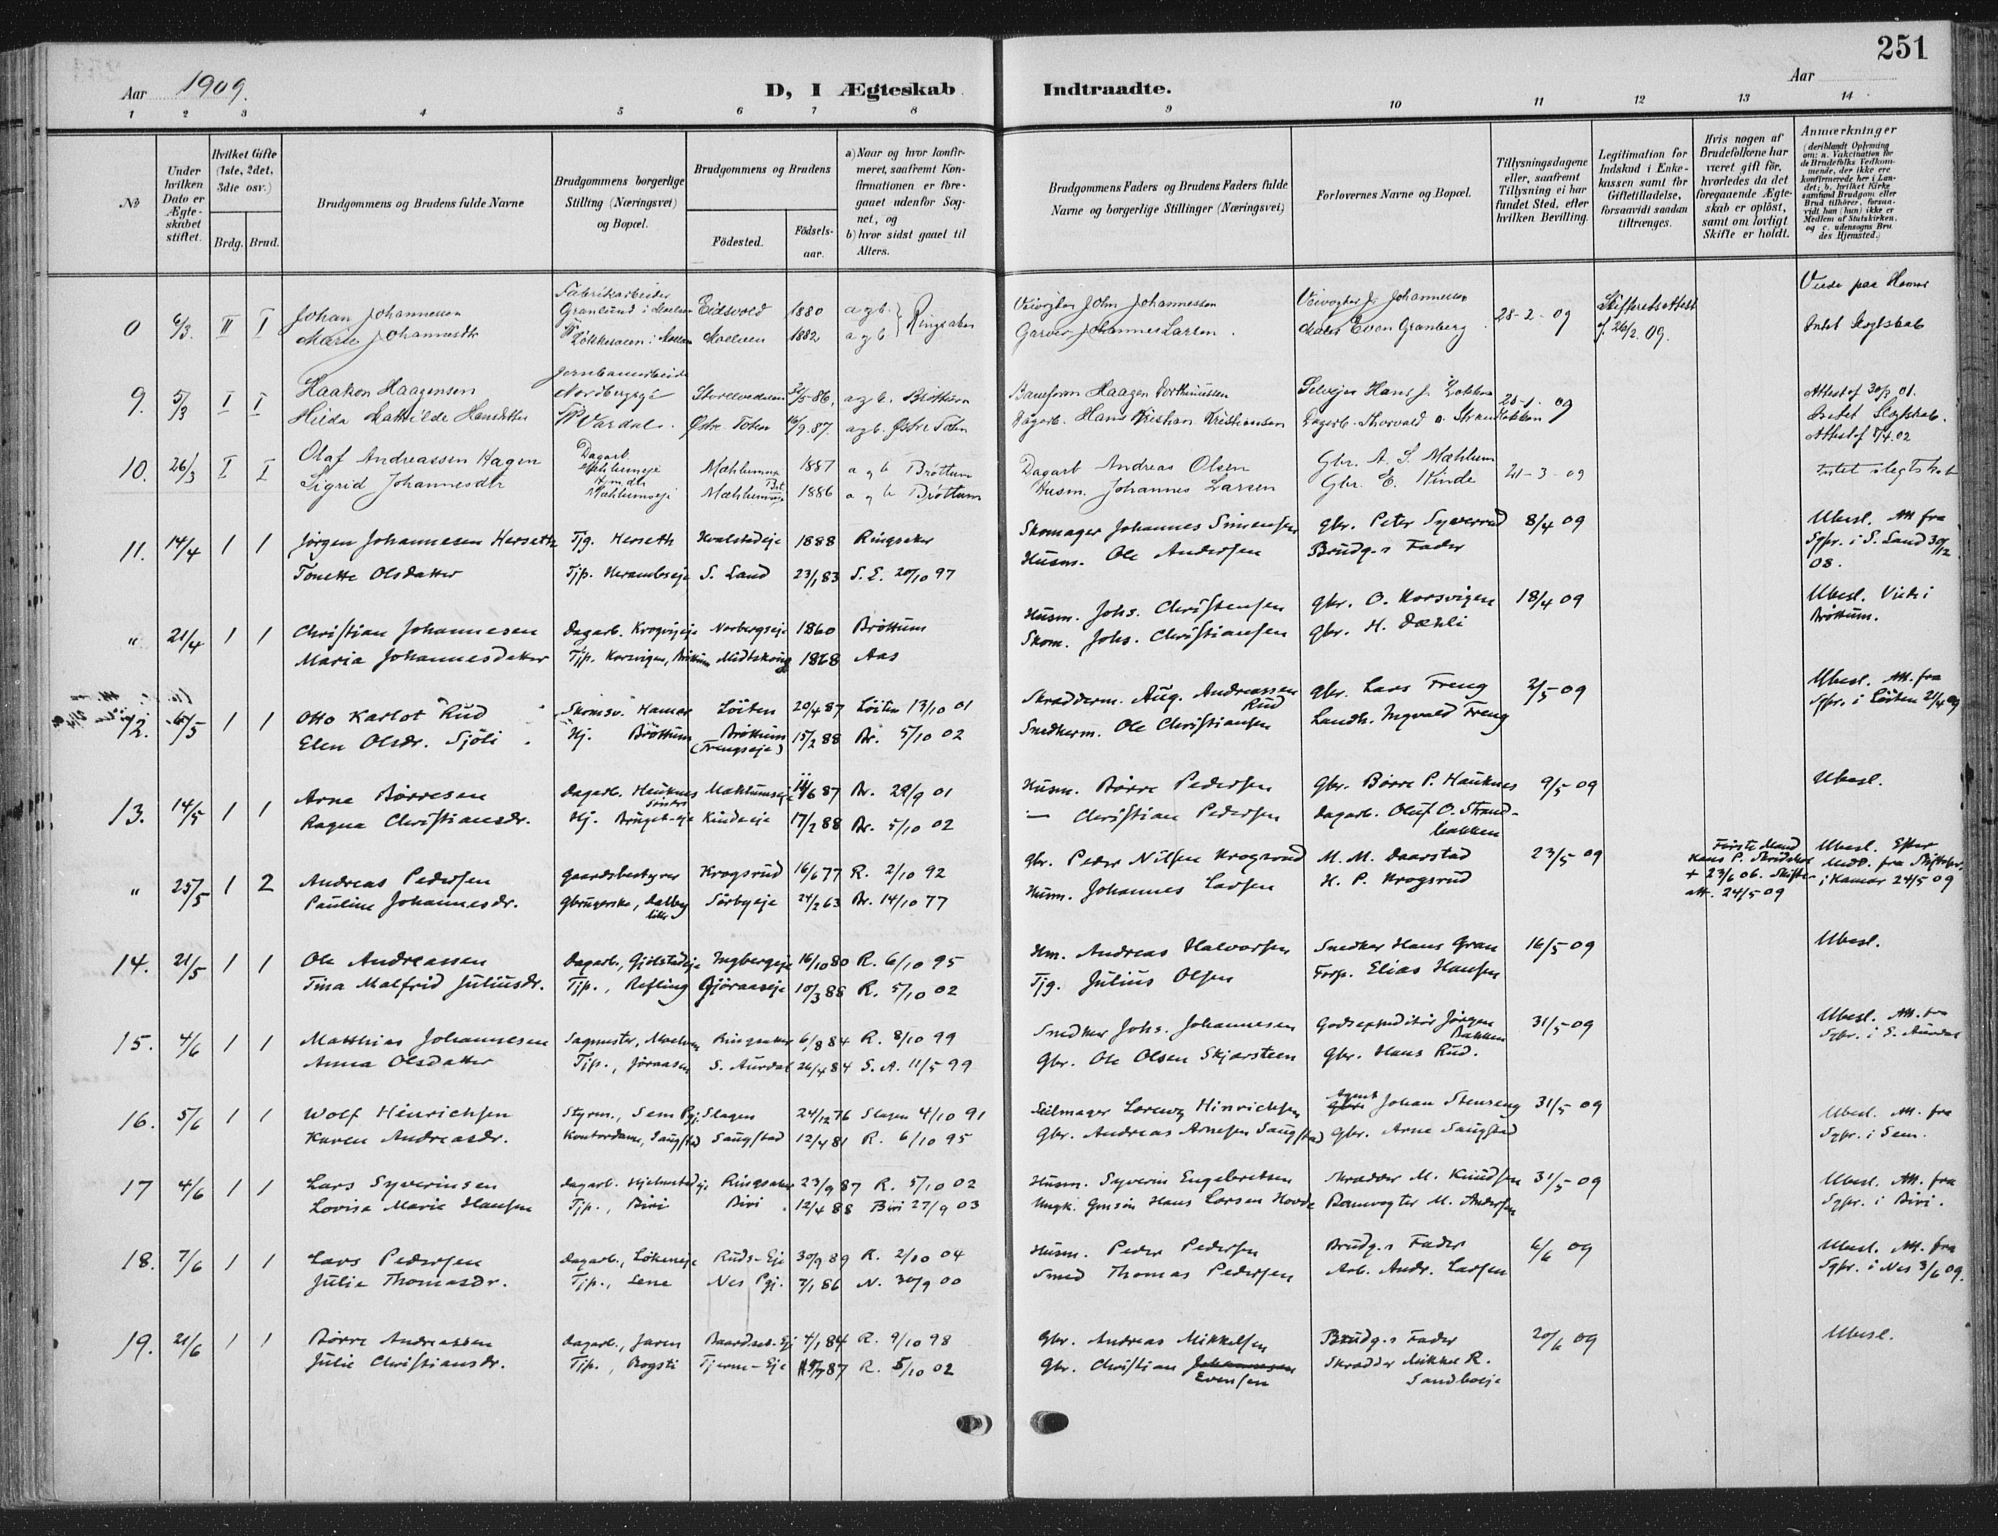 251
Aar 1909.
D, I Ægteskab
Indtraadte.
Aar
1 2 3 4 5 6 7 8 9 10 11 12 13 14
№
Under hvilken Dato er Ægteskabet stiftet.
Hvilket Gifte (1ste, 2det, 3die osv.)
Brdg. Brud.
Brudgommens og Brudens fulde Navne
Brudgommens borgerlige Stilling (Næringsvei) og Bopæl.
Brudgommens og Brudens
Fødested.
Fødselsaar.
a) Naar og hvor konfirmeret, saafremt Konfirmationen er foregaaet udenfor Sognet, og
b) hvor sidst gaaet til Alters.
Brudgommens Faders og Brudens Faders fulde Navne og borgerlige Stillinger (Næringsvei)
Forlovernes Navne og Bopæl.
Tillysningsdagene eller, saafremt Tillysning ei har fundet Sted, efter hvilken Bevilling.
Legitimation for Indskud i Enkekassen samt for Giftetilladelse, forsaavidt saadan tiltrænges.
Hvis nogen af Brudefolkene har været gift før, hvorledes da det foregaaende Ægteskab er opløst, samt om lovligt Skifte er holdt.
Anmærkninger
(deriblandt Oplysning om: a. Vakcination for de Brudefolks Vedkommende, der ikke ere konfirmerede her i Landet; b. hvilket Kirkesamfund Brudgom eller Brud tilhører, forsaavidt han (hun) ikke er Medlem af Statskirken, og c. udensogns Brudes Hjemsted.)
0 6/3. II I Johan Johannessen Fabrikarbeider Granlund i Moelven Eidsvold 1880 a og b. } Ringsaker Veivogter John Johannessen Veivogter J. Johannessen 28-2-09 Skifteretsattest f. 26/2.09. Viede paa Hamar
Marie Johannesdtr Moelven 1882 a og b Garver Johannes Larsen. Maler Even Granberg Intet Slegtskab
9. 5/3 I I Haakon Haagensen Jernbanearbeider Nordbergseje Storelvedalen 86. a og b. Brøttum Haagen 28-1-09 Attest af 30/3 01.
Hilda Hansdatter Vardal. Østre Toten 16/9.87. a og b. Østre Toten Dagarb. Hans Kristian Kristiansen Dagarb. Thorvald Intet Slegtskab.
Attest af 1/4.02
10. 26/3 I I Olaf Andreassen Hagen Dagarb. Mæhlumseje Mæhlum 1887 a og b Brøttum Dagarb Andreas Olsen Gbr. A. S. Mæhlum 21-3-09 Intet slegtskab
Sigrid Johannesdtr Mæhlumseje 1886 a og b Brøttum Husm. Johannes Larsen Gbr. E. Kinde
11. 14/4 1 1 Jørgen Johannesen Herseth Tjg. Herseth Hvalstadeje 1888 Ringsaker Skomager Johannes Simensen Gbr. Peter Syverud 8/4 09 Ubesl. Att fra
Tonette Olsdatter Tjp. S. Land 23/1 83 S. L. 20/10 97 Husm. Ole Andersen Brudg.s Fader Sgpr. i S. Land 30/12 08.
" 21/4 1 1 Christian Johannesen Dagarb. Norbergseje 1860 Brøttum Husm. Johs. Christensen Gbr. O. Korsvigen 18/4 09 Ubesl. Viede i Brøttum.
Maria Johannesdatter Tjp. Korsvigen, Brøttum Midtskoug 1868 Aas Skom. Johs. Christiansen Gbr. H. Dæhli
12. 6/5 1 1 Otto Karlot Rud Skomsv. Hamar Løiten 20/4 87 Løiten 13/10 01 Skrædderm. Aug. Andreassen Rud Gbr. Lars Freng 2/5 09 Ubesl. Att. fra Sgpr. i Løiten 2/4 09
Elen Olsdr. Sjøli Hj. Brøttum Brøttum (Frengseje) 15/2 88 Br. 5/10 02 Snedkerm. Ole Christiansen Landh. Ingvald Freng
13. 14/5 1 1 Arne Børresen Dagarb. Hauknes Søndre Mæhlumseje 14/6 87 Br. 28/9 01 Husm. Børre Pedersen Gbr. Børre P. Hauknes 9/5 09 Ubesl.
Ragna Christiansdr. Hj. Kindeeje 17/2 88 Br. 5/10 02 — Christian Pedersen Dagarb. Oluf O. Strandbakken
" 25/5 1 2 Andreas Pedersen Gaardsbestyrer Krogsrud 16/6 77 R. 2/10 92 Gbr. Peder Nilsen Krogsrud M. M. Daarstad 23/5 09 Første Mand Hans P. + 23/6 06. Skifteatt. 24/5 09 Ubesl. Efter Medd. fra Skifteforv. i Hamar 24/5 09
Pauline Johannesdr. Gbrugerske, Dalby lille Sørbyeje 24/2 63 Br. 14/10 77 Husm. Johannes Larsen H. P. Krogsrud
14. 21/5 1 1 Ole Andreassen Dagarb., Gjølstadeje Ingbergeje 16/10 80 R. 6/10 95 Hm. Andreas Halvorsen Snedker Hans Gran 16/5 09 Ubesl.
Tina Malfrid Juliusdr. Tjp., Refling Gjøraaseje 10/3 88 R. 5/10 02 Tjg. Julius Olsen Forp. Elias Hansen
15. 4/6 1 1 Matthias Johannesen Sagmester, Moelven Ringsaker 6/8 84 R. 8/10 99 Snedker Johs. Johannesen Godsexpeditør Jørgen Bakken 31/5 09 Ubesl. Att. fra Sgpr. i S. Aurdal
Anna Olsdatter Tjp., Joraasen S. Aurdal 26/4 84 S. A. 11/5 99 Gbr. Ole Olsen Skjærsteen Gbr. Hans Rud.
16. 5/6 1 1 Wolf Hinrichsen Styrm., Sem Pgj. Slagen 24/12 76 Slagen 4/10 91 Seilmager Lorenz Hinrichsen Agent Johan Stenseng 31/5 09 Ubesl. Att. fra Sgpr. i Sem.
Karen Andreasdr. Kontordame, Saugstad Saugstad 12/4 81 R. 6/10 95 Gbr. Andreas Arnesen Saugstad Gbr. Arne Saugstad
17 4/6 1 1 Lars Syverinsen Dagarb. Hjelmstadeje Ringsaker 23/9 87 R. 5/10 02 Husm. Syverin Engebretsen Skrædder M. Knudsen 31/5 09 Ubesl. Att. fra Sgpr. i Biri.
Lovise Marie Hansen Tjp., Biri Biri 12/4 88 Biri 27/9 03 Ungk. Gmsøn Hans Larsen Hovde Banevogter M. Andersen
18. 7/6 1 1 Lars Pedersen Dagarb., Løkeneje Ruds-Eje 30/9 89 R. 2/10 04 Husm. Peder Pedersen Brudg.s Fader 6/6 09 Ubesl. Att. fra Sgpr. i Nes 3/6 09.
Julie Thomasdr. Tjp., Lene Nes Pgj. 7/1 86 N. 30/9 00 Smed Thomas Pedersen Arb. Andr. Larsen
19. 21/6 1 1 Børre Andreassen Dagarb., Jaren Baardset-Ej 4/1 84 R. 9/10 98 Gbr. Andreas Mikkelsen Brudg.s Fader 20/6 09 Ubesl.
Julie Christiansdr. Tjp., Bogsti Tjerne-Eje 87 R. 5/10 02 Gbr. Christian Johannesen Evensen Skrædder Mikkel R. Sandboeje